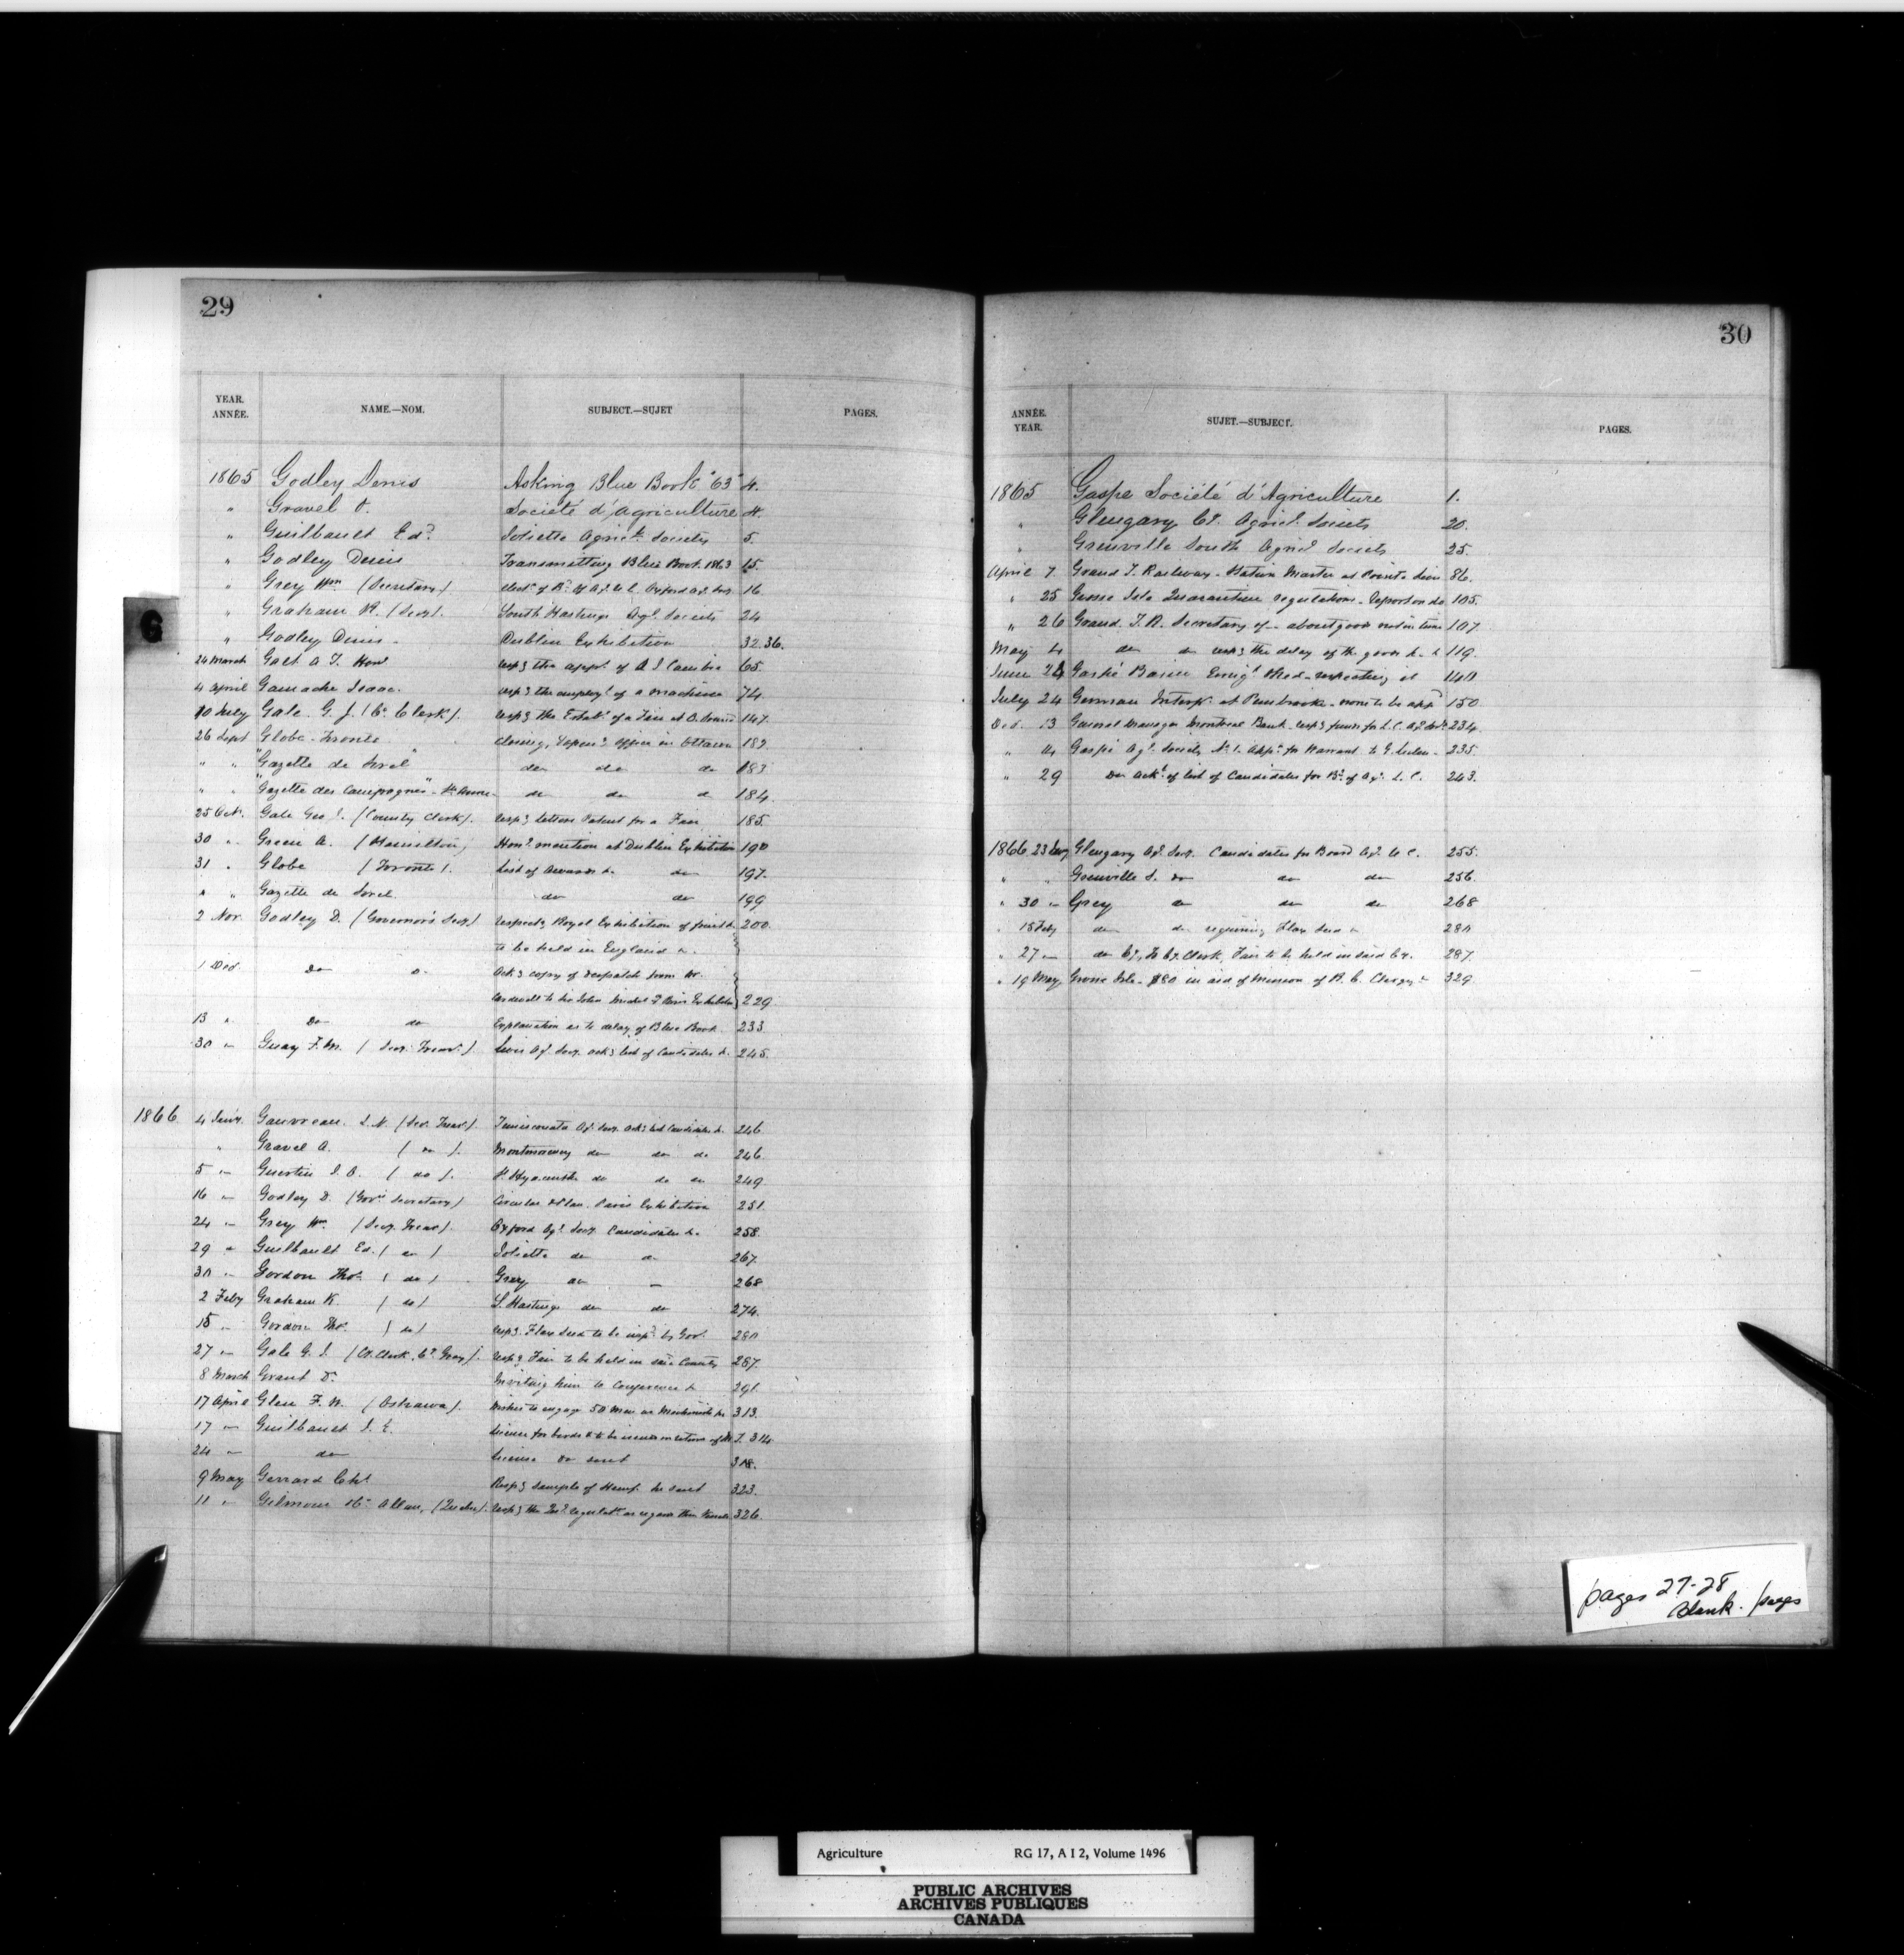 29
YEAR. ANNÉE. NAME.—NOM. SUBJECT.—SUJET PAGES.
1865 Godley Denis Asking Blue Book "63" 4.
" Gravel O. Société d'Agriculture 4.
" Guilbault Ed. Joliette Agricl. Society 5.
" Godley Denis Transmitting Blue Book 1863 15.
" Grey Wm (Secretary) Elect. of Bd. of Ag. U. C. Oxford Ag. Socy. 16
" Graham K. (Secy). South Hastings Agl. Society 24
" Godley Denis Dublin Exhibition 32.36.
24 March Galt A T. Honl. resp.g the appt. of A. J. 65.
4 April Gamache Isaac. resp.g the employt. of a machine 74.
10 July Gale G. J. (Co. Clerk). resp.g the Establt. of a Fair at O. Sound 147.
26 Sept Globe - Toronto closing, & opening office in Ottawa 182.
" " "Gazette de Sorel" do do do 183
" " "Gazette des Campagnes" - St. Anne - do do do 184.
25 Oct. Gale Geo J. (County Clerk). resp.g Letters Patent for a Fair 185.
30 " Green A. (Hamilton) Honl. mention at Dublin Exhibition 190
31 " Globe (Toronto). List of Awards &c do 197.
" " Gazette de Sorel do do 199
2 Nov. Godley D. (Governor's Secy.) respectg Royal Exhibition of fruit &c
to be held in England &c. 200.
1 Decr. Do Do Ack.g copy of despatch from Mr.
Cardwell to Paris Exhibition 229
13 " Do do Explanation as to delay of Blue Book 233
30 " Guay F. M. (Secy. Treasr.). Levis Agl. Socy. ack.g list of Candidates &c. 245.
1866 4 Jany. Gauvreau L. N. (Sec. Treasr). Temiscouata Agl. Socy. ack.g list Candidates &c. 246.
" Gravel A. (do). Montmorency do do do 246.
5 " Guertin J. B. (do). St. Hyacinthe do do do 249
16 " Godley D. (Govr's Secretary) Circular & Plan. Paris Exhibition 251.
24 " Grey Wm. (Secy. Treasr). Oxford Agl. Socy. Candidates &c. 258.
29 " Guilbault Ed. (do) Joliette do do 267.
30 " Gordon Thos. (do) Grey do — 268
2 Feby Graham K. (do) S. Hastings do do 274.
15 " Gordon Thos. (do) resp.g Flax Seed to be impd. by Govt. 280
27 " Gale G. J. (Co. Clerk, Co. Grey). resp.g Fair to be held in said County 287.
8 March Grant D. Inviting him to Conference &c 291.
17 April Glen F. W. (Oshawa). wishes to engage 50 men as Machinists &c 313.
17 " Guilbault J. E. License for birds to be issued 314
24 " do License do sent 318.
9 May Gerrard Chs. Resp.g sample of Hemp he sent 323.
11 " Gilmour Allan, (Quebec). resp.g the regulatn. as regards their vessels 326.
G
30
ANNÉE. YEAR. SUJET.—SUBJECT. PAGES.
1865 Gaspe Société d'Agriculture 1.
" Glengary Co. Agricl. Society 20.
" Grenville South Agricl Society 25.
April 7 Grand T. Railway - Station Master at Point Levi 86.
" 25 Grosse Isle Quarantine regulations - Report on do 105.
" 26 Grand. T. R. Secretary of - about goods not in time 107.
May 4 do do resp.g the delay of the goods &c. 119.
June 24 Gaspé Basin Emigt. Shed - respecting it 140
July 24 German Interp. at Pembrooke - none to be appd 150
Dec. 13 General Manager Montreal Bank - resp.g funds for L. C. 234.
" 14 Gaspé Agl. Society No. 1. Appn. for Warrant to G. 235.
" 29 Do Ackt. of list of Candidates for Bd. of Agl. L. C. 243.
1866. 23 Jany Glengary Agl. Socy. Candidates for Board Agl. U. C. 255.
" " Grenville S. do do do 256.
" 30 " Grey do do do 268
" 15 Feby do do requiring Flax Seed &c 280
" 27 " do Co., To Co. Clerk, Fair to be held in said Co. 287.
" 19 May, Grosse Isle - $80 in aid of Mission of R. C. Clergy &c 329.
pages 27-28
blank. pages
Agriculture RG 17, A I 2, Volume 1496
PUBLIC ARCHIVES
ARCHIVES PUBLIQUES
CANADA